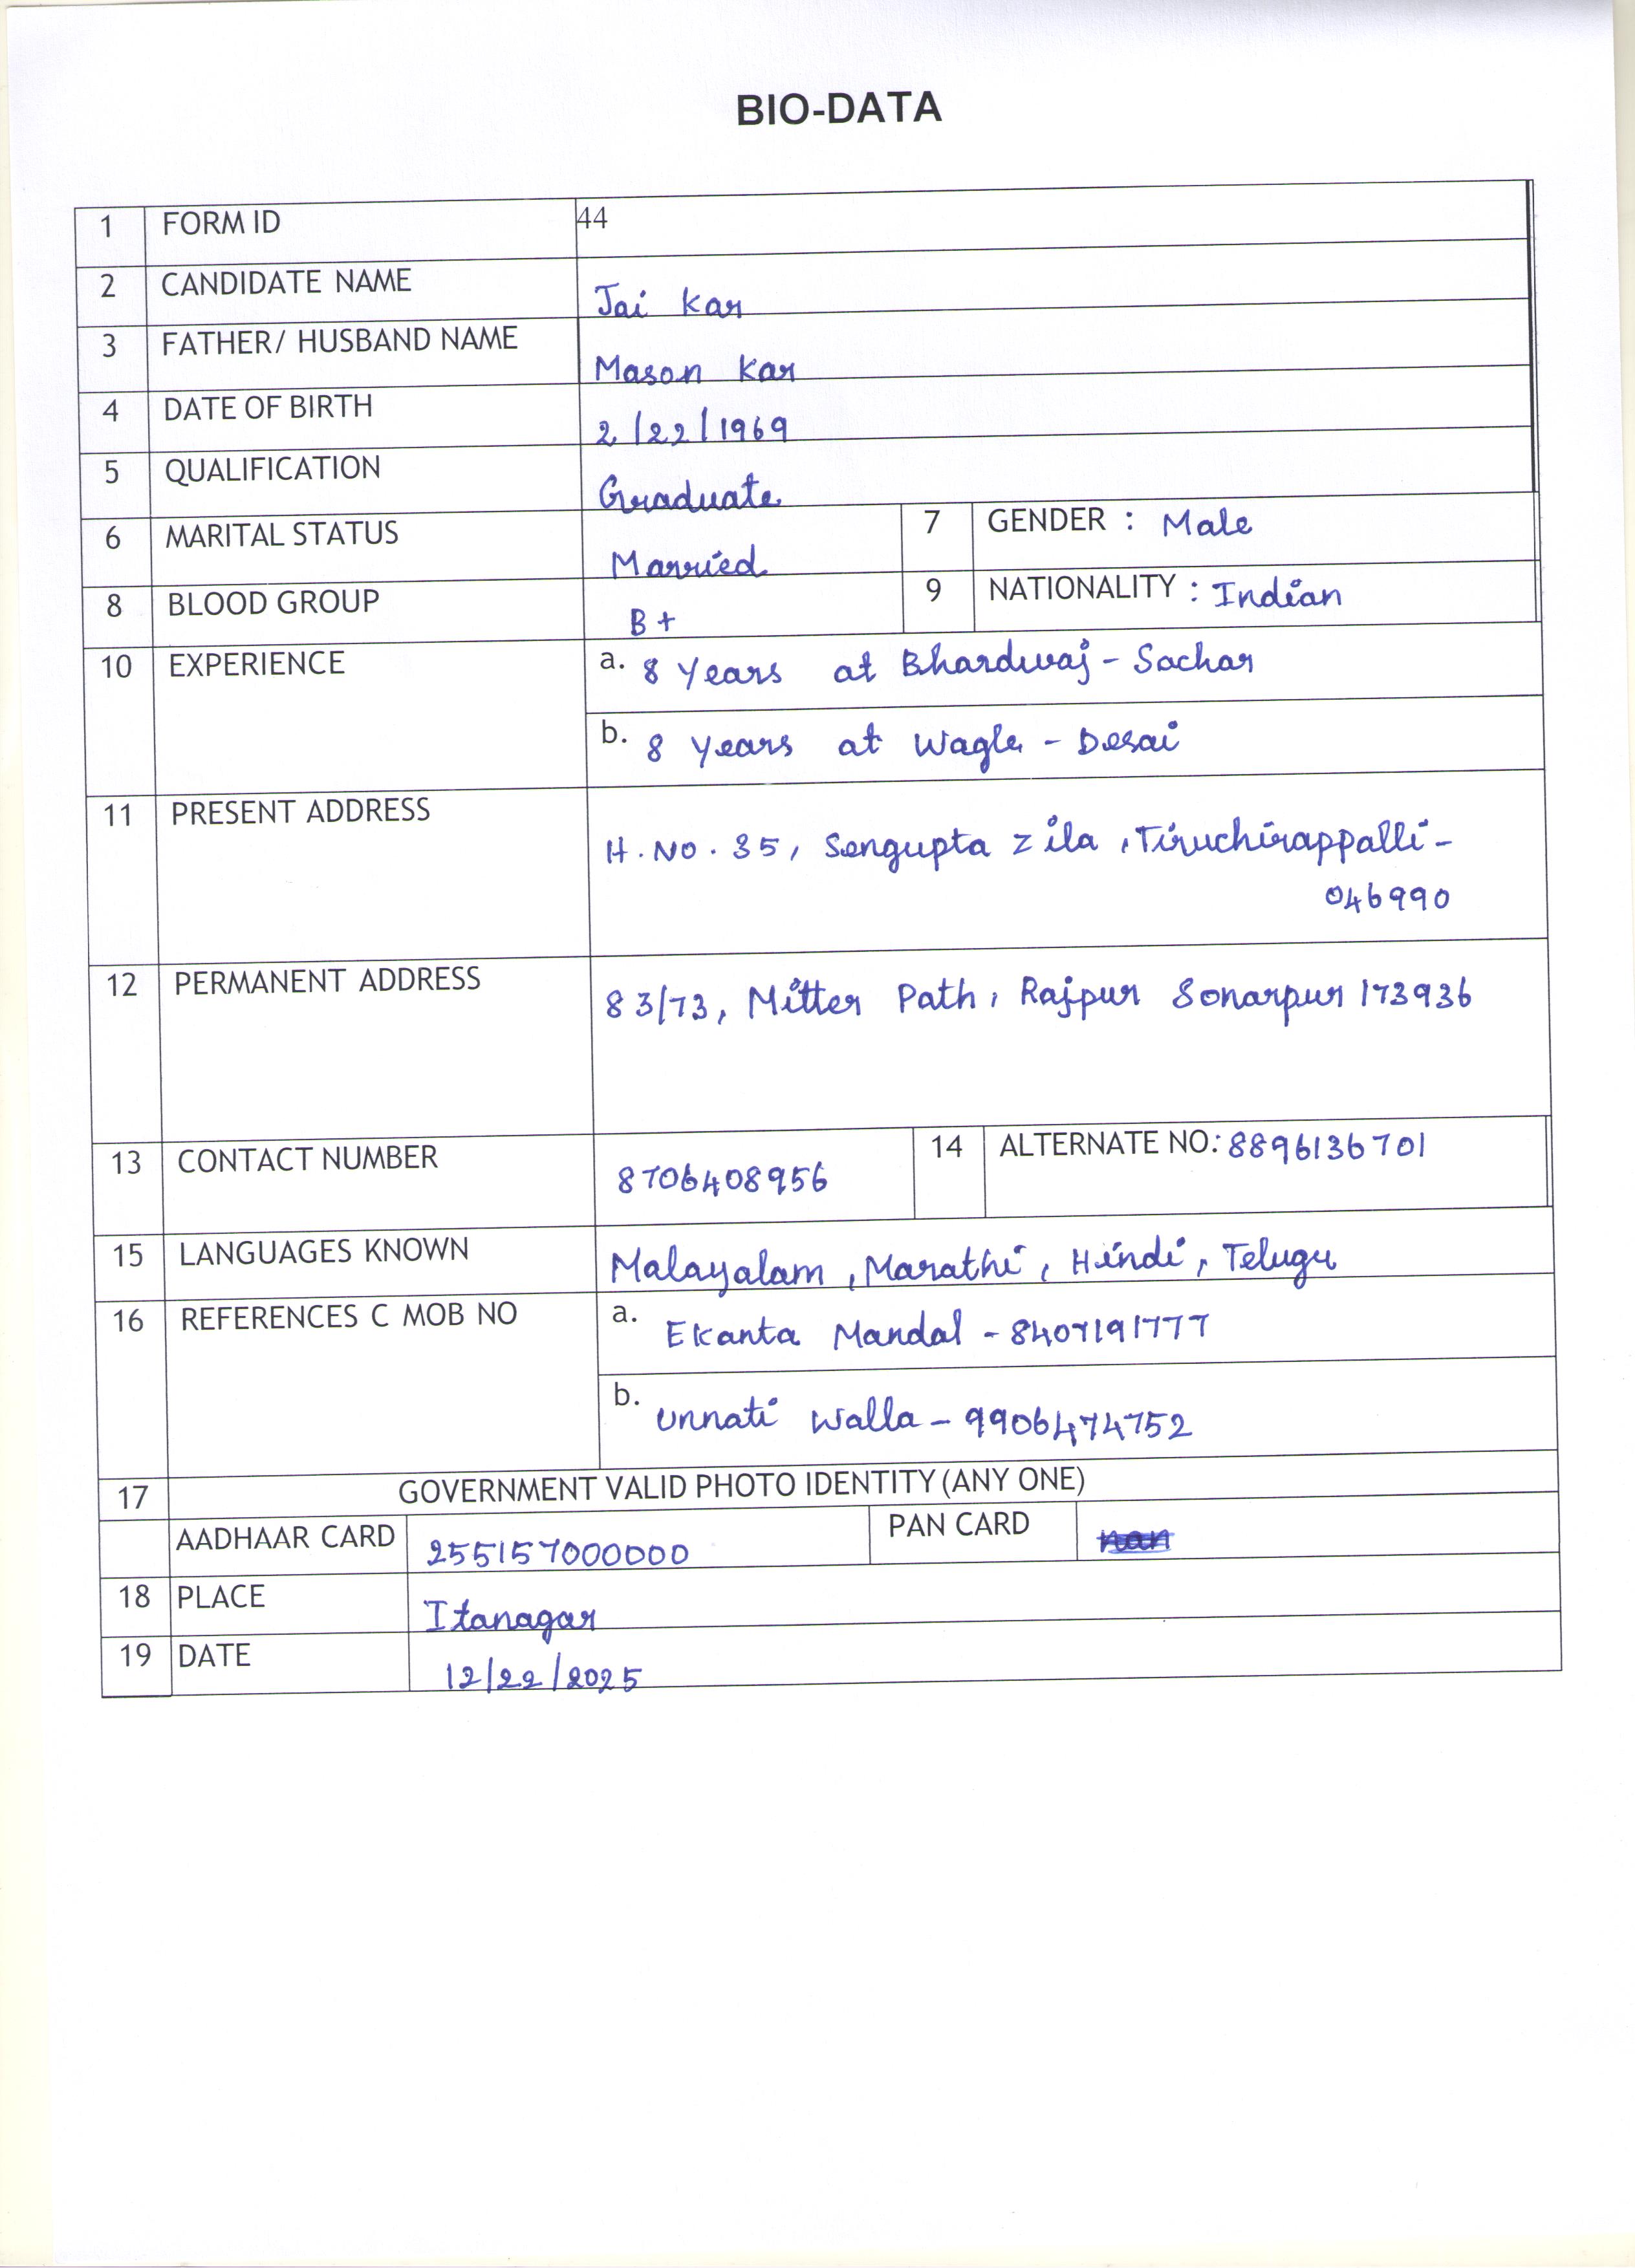 BIO-DATA
1 FORM ID 44
2 CANDIDATE NAME Jai Kar
3 FATHER/ HUSBAND NAME Mason Kar
4 DATE OF BIRTH 2/22/1969
5 QUALIFICATION Graduate
6 MARITAL STATUS Married 7 GENDER : Male
8 BLOOD GROUP B+ 9 NATIONALITY : Indian
10 EXPERIENCE a. 8 Years at Bhardwaj - Sachar
b. 8 Years at Wagle - Desai
11 PRESENT ADDRESS H.NO. 35, Sengupta Zila, Tiruchirappalli -
046990
12 PERMANENT ADDRESS 83/73, Mitter Path, Rajpur Sonarpur 173936
13 CONTACT NUMBER 8706408956 14 ALTERNATE NO: 8896136701
15 LANGUAGES KNOWN Malayalam, Marathi, Hindi, Telugu
16 REFERENCES C MOB NO a. Ekanta Mandal - 8407191777
b. Unnati Walla - 9906474752
17 GOVERNMENT VALID PHOTO IDENTITY (ANY ONE)
AADHAAR CARD 255157000000 PAN CARD
18 PLACE Itanagar
19 DATE 12/22/2025